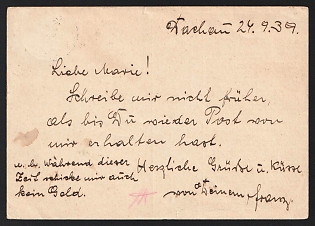 Dachau 24.9.39.
Liebe Marie!
Schreibe mir nicht früher,
als bis Du wieder Post von
mir erhalten hast.
u. b. Während dieser
Zeit schicke mir auch
kein Geld.
Herzliche Grüße u. Küsse
von Deinem Franz.